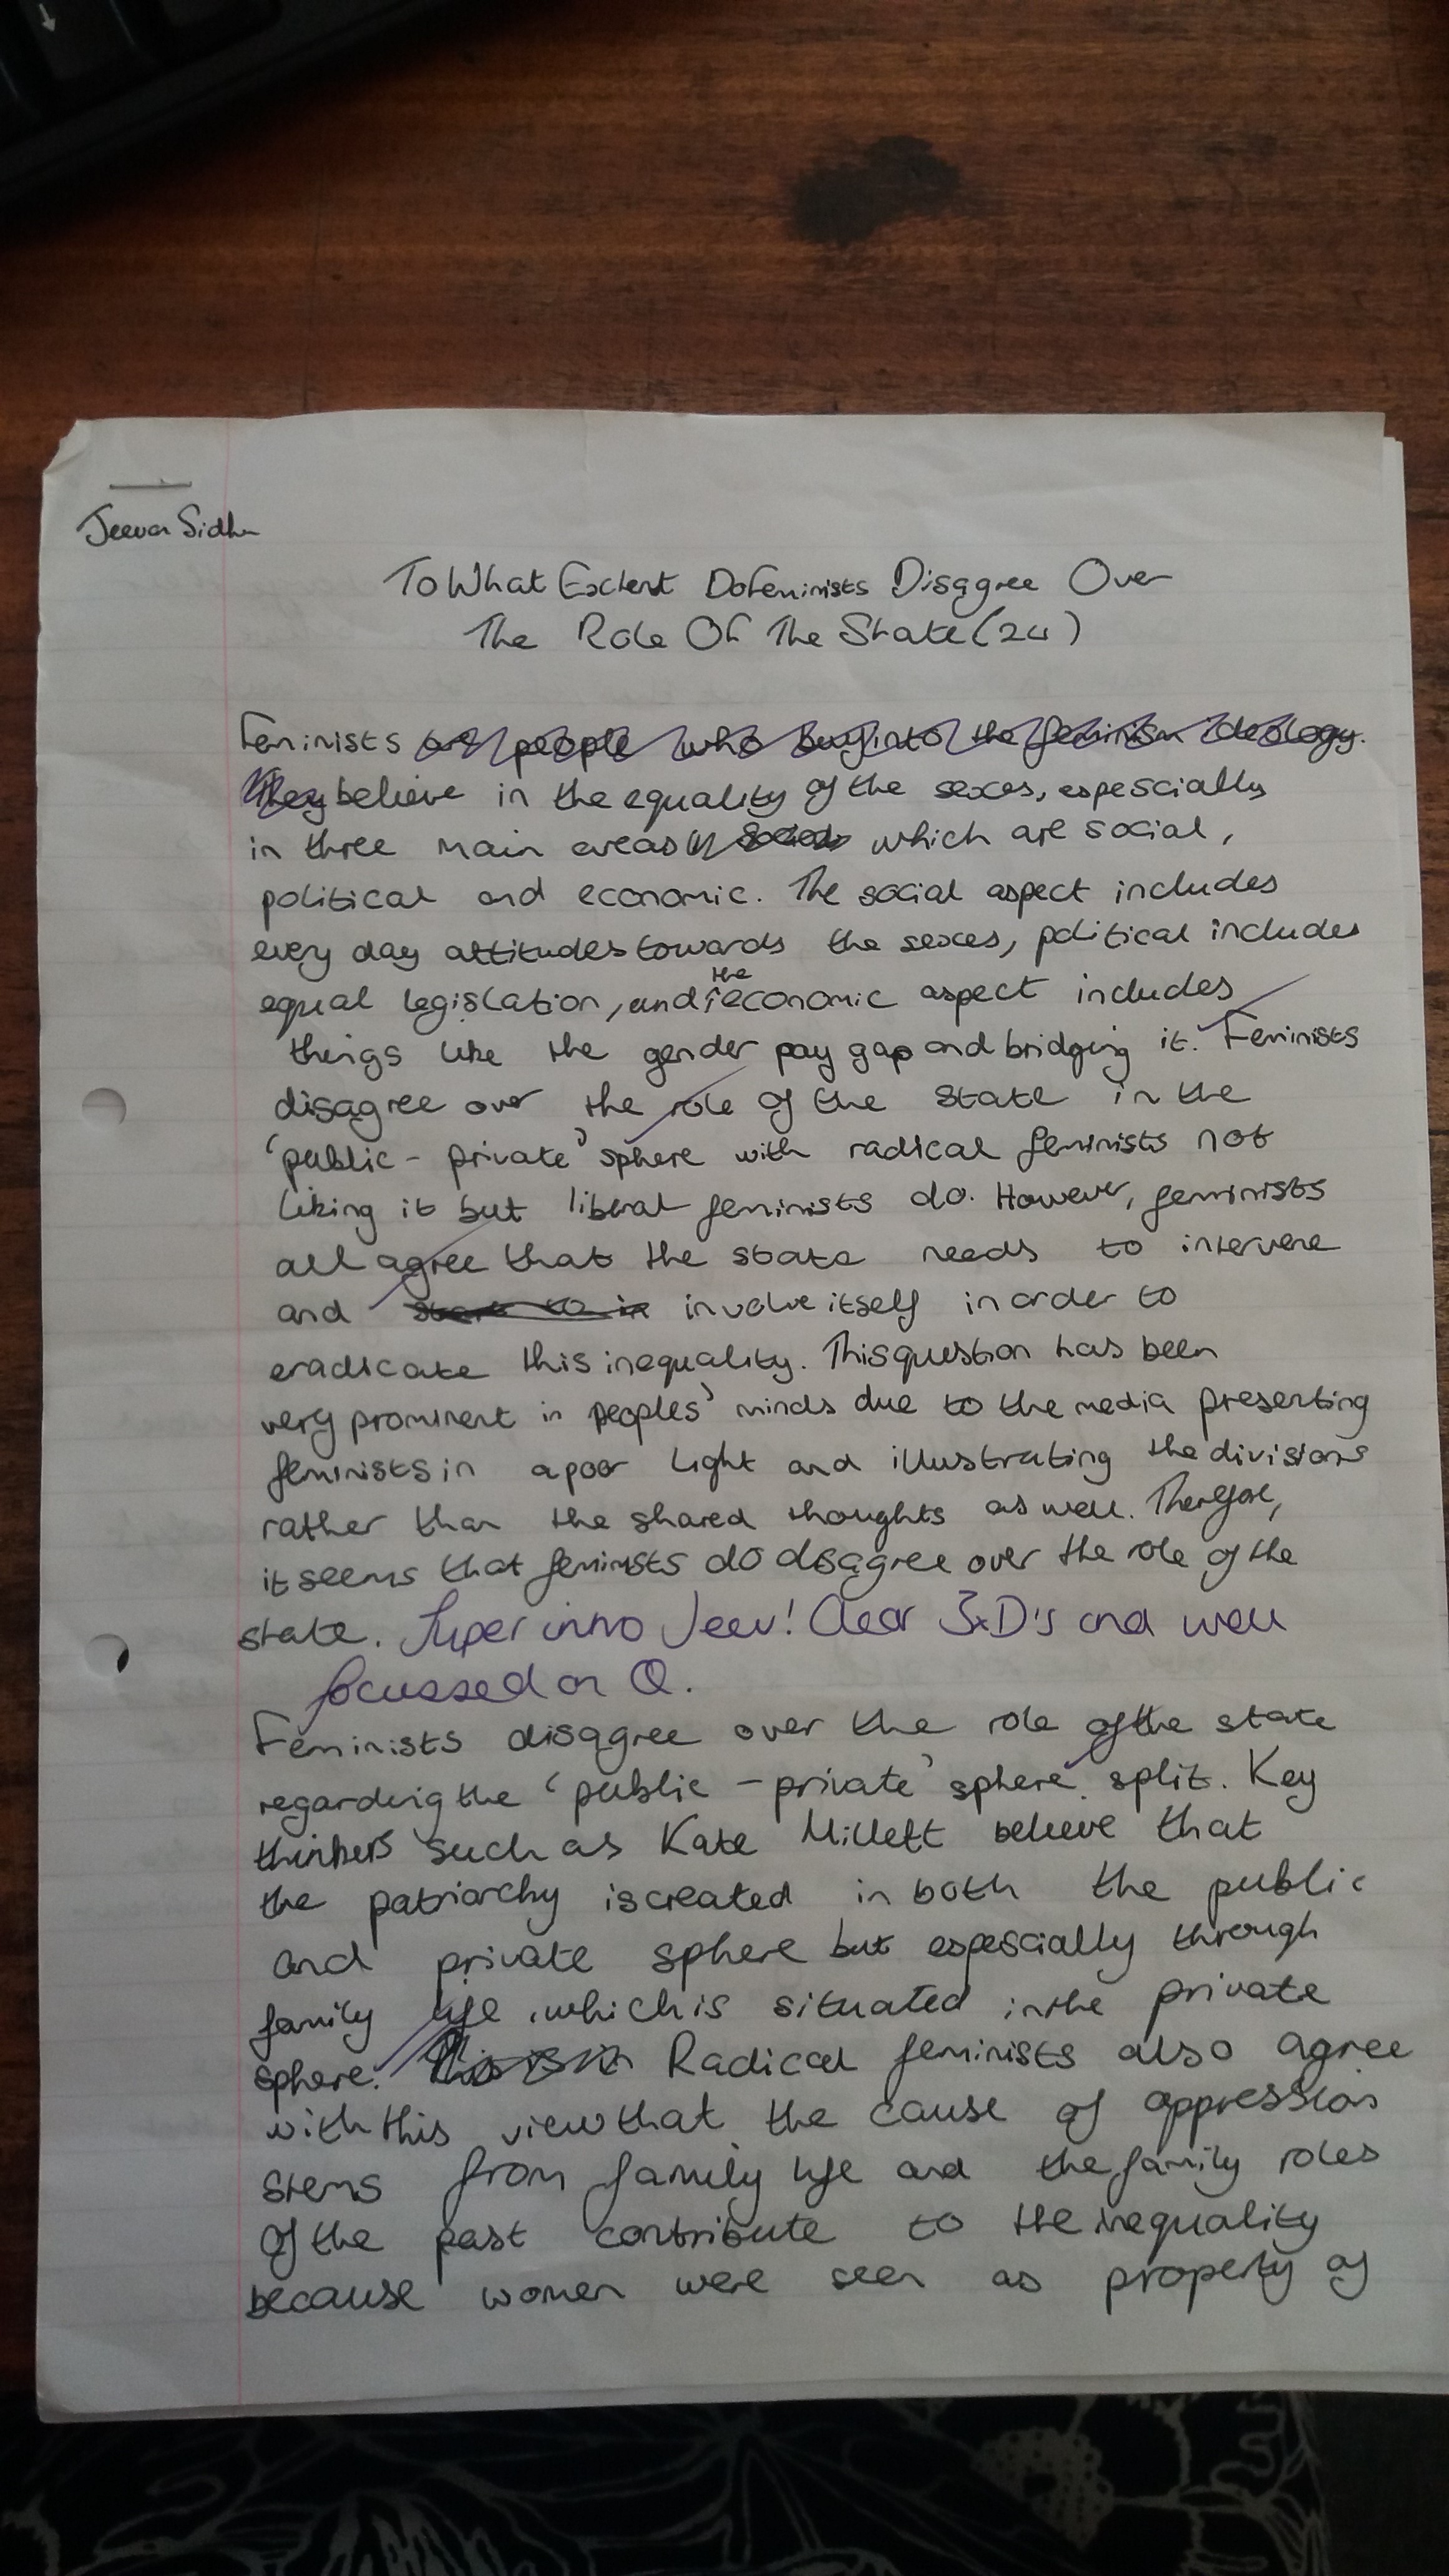 Jeevan Sidhu
To What Extent Do Feminists Disagree Over
The Role Of The State (24)
Feminists are people who buy into the feminism ideology.
They believe in the equality of the sexes, espescially
in three main areas which are social,
political and economic. The social aspect includes
every day attitudes towards the sexes, political includes
equal legislation, and the economic aspect includes
things like the gender pay gap and bridging it. Feminists
disagree over the role of the state in the
'public - private' sphere with radical feminists not
liking it but liberal feminists do. However, feminists
all agree that the state needs to intervene
and involve itself in order to
eradicate this inequality. This question has been
very prominent in peoples' minds due to the media presenting
feminists in a poor light and illustrating the divisions
rather than the shared thoughts as well. Therefore,
it seems that feminists do disagree over the role of the
state. Super intro Jeev! Clear 3xD's and well
focussed on Q.
Feminists disagree over the role of the state
regarding the 'public - private' sphere split. Key
thinkers such as Kate Millett believe that
the patriarchy is created in both the public
and private sphere but espescially through
family life which is situated in the private
sphere. This is in Radical feminists also agree
with this view that the cause of oppression
stems from family life and the family roles
of the past contribute to the inequality
because women were seen as property of